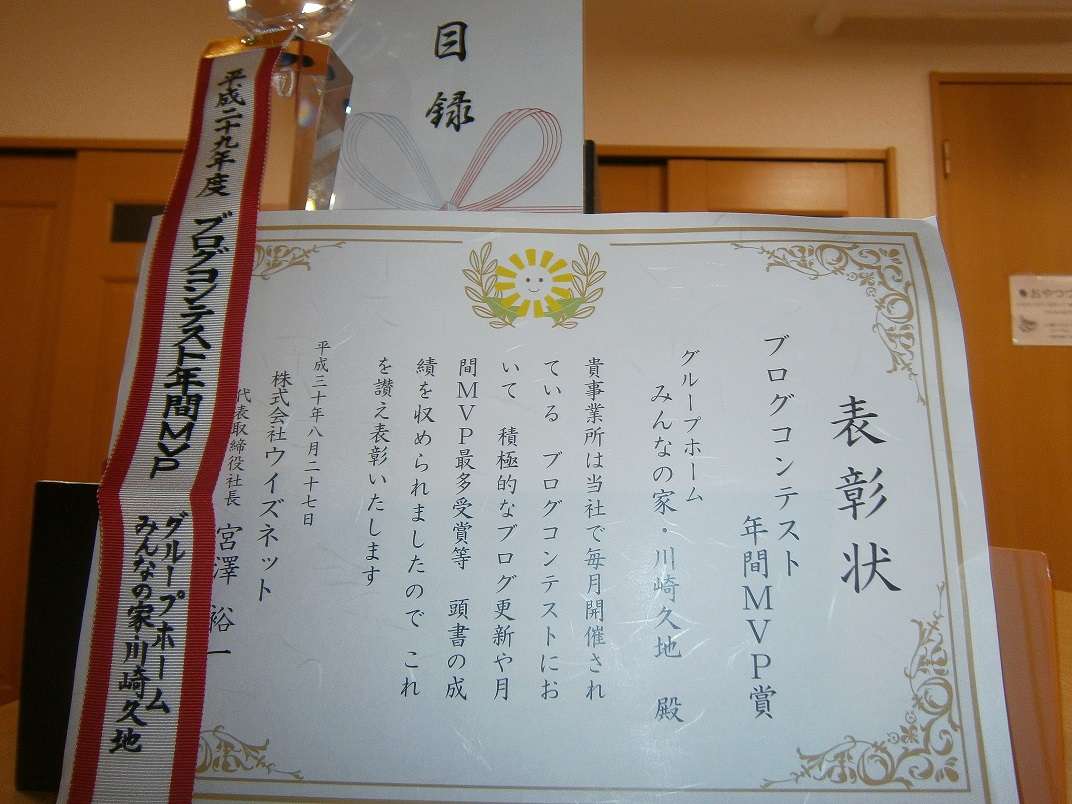 目録
平成二十九年度 ブログコンテスト年間MVP
グループホーム
みんなの家・川崎久地
表彰状
ブログコンテスト
年間MVP賞
グループホーム
みんなの家・川崎久地 殿
貴事業所は当社で毎月開催され
ている ブログコンテストにお
いて 積極的なブログ更新や月
間MVP最多受賞等 頭書の成
績を収められましたので これ
を讃え表彰いたします
平成三十年八月二十七日
株式会社ウイズネット
代表取締役社長 宮澤 裕一